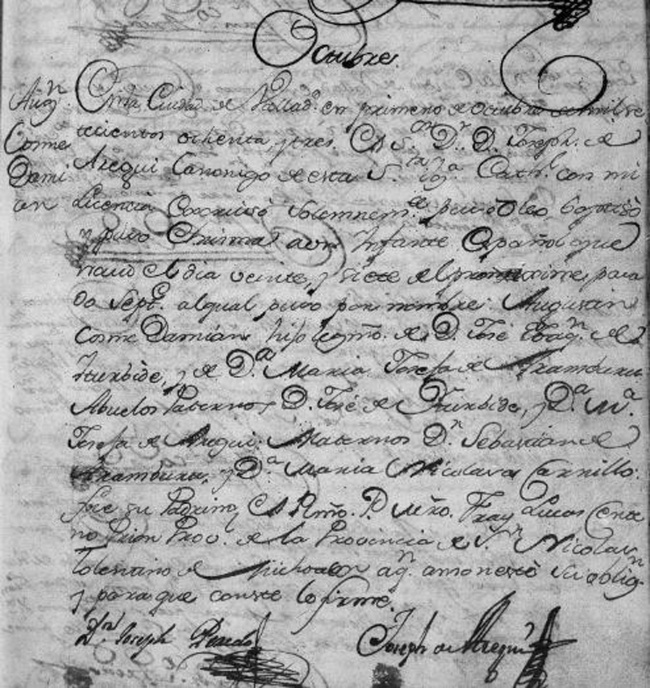 Octubre
Aug.n
Cosme
Dami
an
En la Ciudad de Vallad. en primero de Octubre de mil se
tecientos ochenta, y tres. El S.or D.r D. Joseph. de
Aregui Canonigo de esta S.ta Ygª Cath.l con mi
Licencia Exorcisó solemnem.te puso Oleo baptizó
y puso Chrisma a un Infante Español que
nació el dia veinte, y siete del proximo pasa
do Sept.e al qual puso por nombre. Augustin
Cosme Damian hijo legmo. de D. José Joaq.n de
Yturbide, y de D.ª Maria Josefa de Aramburu
Abuelos Paternos D. José de Yturbide, y D.ª M.ª
Josefa de Aregui. Maternos D.n Sebastian de
Aramburu, y D.ª Maria Nicolasa Carrillo.
fue su Padrino El Rmo. P. Mro. Fray Lucas Cente
no Prior Prov. de la Provincia de S.n Nicolas
Tolentino de Michoacan aq.n amonestó su oblig.n
y para que conste lo firmé.
Joseph Peredo
Joseph de Aregui